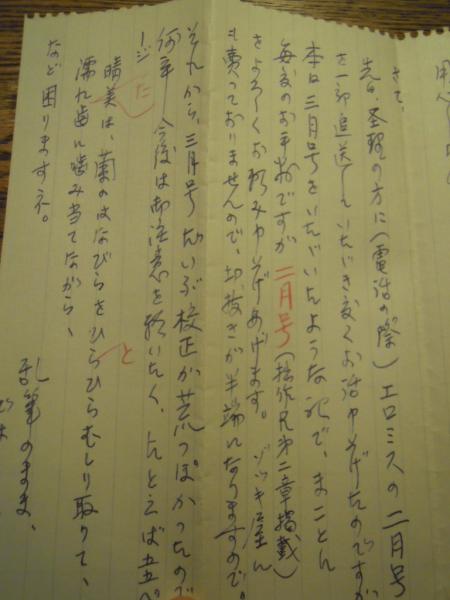 用件のみ
さて、
先日、経理の方に(電話の際)エロミスの二月号
を一部追送していたゞき度くお話申上げたのですが
本日三月号をいたゞいたような訳で、まことに
毎度のお手数ですが二月号(拙作兄第二章掲載)
をよろしくお頼み申上げます。ゾッキ屋に
も売っておりませんので、切抜きが半端になりますので。
それから、三月号だいぶ校正が荒っぽかったので
何卒今後は御注意を願いたく、たとえば五五ペ
ージ
た
晴美は、蘭のはなびらをひらひらむしり取りて、
と
濡れ歯に噛み当てながら、
など困りますネ。
乱筆のまま、